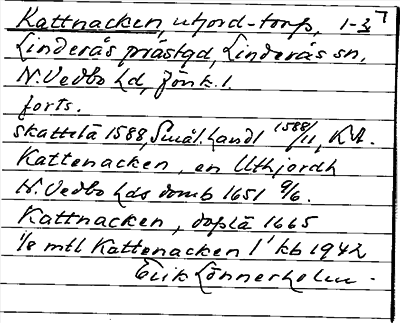 Kattnacken utjord-torp, 1-3 7
Linderås prästgd, Linderås sn,
N. Vedbo hd, Jönk. l.
forts.
skattelä 1588, Smål. handl 1588/11, KA.
Kattenacken, en Uthjordh
N. Vedbo hds domb 1651 9/6.
Kattnacken, doplä 1665
1/8 mtl Kattenacken 1' kb 1942
Erik Lönnerholm.